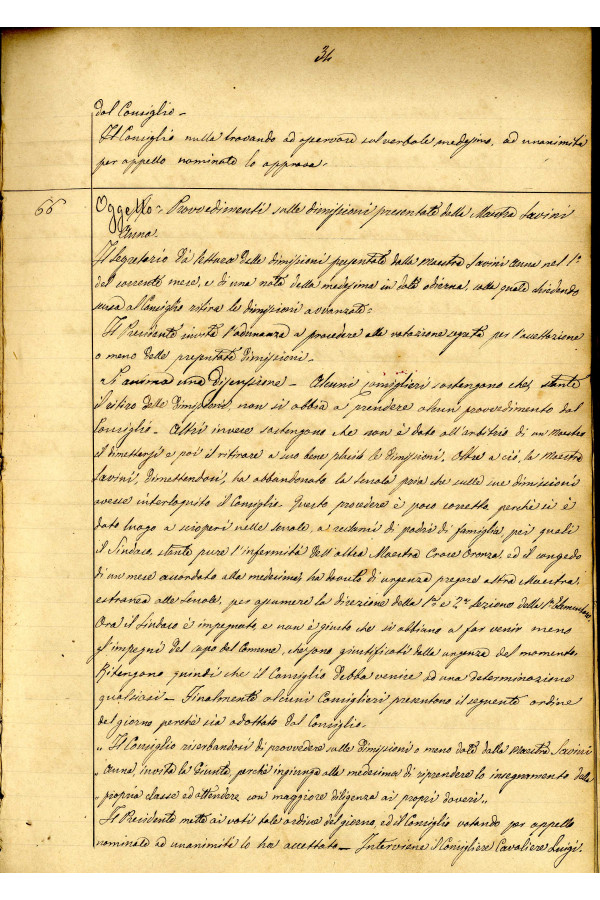 34
dal Consiglio -
Il Consiglio nulla trovando ad osservare sul verbale medesimo, ad unanimità
per appello nominale lo approva.
66
Oggetto: Provvedimenti sulle dimissioni presentate dalla Maestra Savini
Anna.
Il Segretario dà lettura delle dimissioni presentate dalla Maestra Savini Anna nel 1°
del corrente mese, e di una nota della medesima in data odierna, colla quale chiedendo
scusa al Consiglio ritira le dimissioni avanzate.
Il Presidente invita l'adunanza a procedere alla votazione segreta per l'accettazione
o meno delle presentate dimissioni.
Si anima una discussione - Alcuni consiglieri sostengono che, stante
il ritiro delle dimissioni, non si abbia a prendere alcun provvedimento dal
Consiglio - Altri invece sostengono che non è dato all'arbitrio di un Maestro
il dimettersi e poi il ritirare a suo bene placito le dimissioni, Oltre a ciò, la Maestra
Savini, dimettendosi, ha abbandonato la scuola pria che sulle sue dimissioni
avesse interloquito il Consiglio. Questo procedere è poco corretto, perchè si è
dato luogo a scioperi nelle scuole, a reclami di padri di famiglia, pei quali
il Sindaco, stante pure l'infermità dell'altra Maestra Croce Oronza, ed il congedo
di un mese accordato alla medesima, ha dovuto di urgenza pregare altra Maestra,
estranea alle scuole, per assumere la direzione della 1a e 2a sezione della 1a Elementare,
Ora il Sindaco è impegnato, e non è giusto che si abbiano a far venir meno
gl'impegni del capo del Comune, che sono giustificati dalla urgenza del momento.
Ritengono quindi che il Consiglio debba venire ad una determinazione
qualsiasi - Finalmente alcuni Consiglieri presentono il seguente ordine
del giorno perchè sia adottato dal Consiglio.
„ Il Consiglio riserbandosi di provvedere sulle dimissioni o meno date dalla Maestra Savini
„ Anna, invita la Giunta, perchè ingiunga alla medesima di riprendere lo insegnamento della
„ propria classe ed attendere con maggiore diligenza ai propri doveri„.
Il Presidente mette ai voti tale ordine del giorno, ed il Consiglio votando per appello
nominale ad unanimità lo ha accettato - Interviene il Consigliere Cavaliere Luigi.